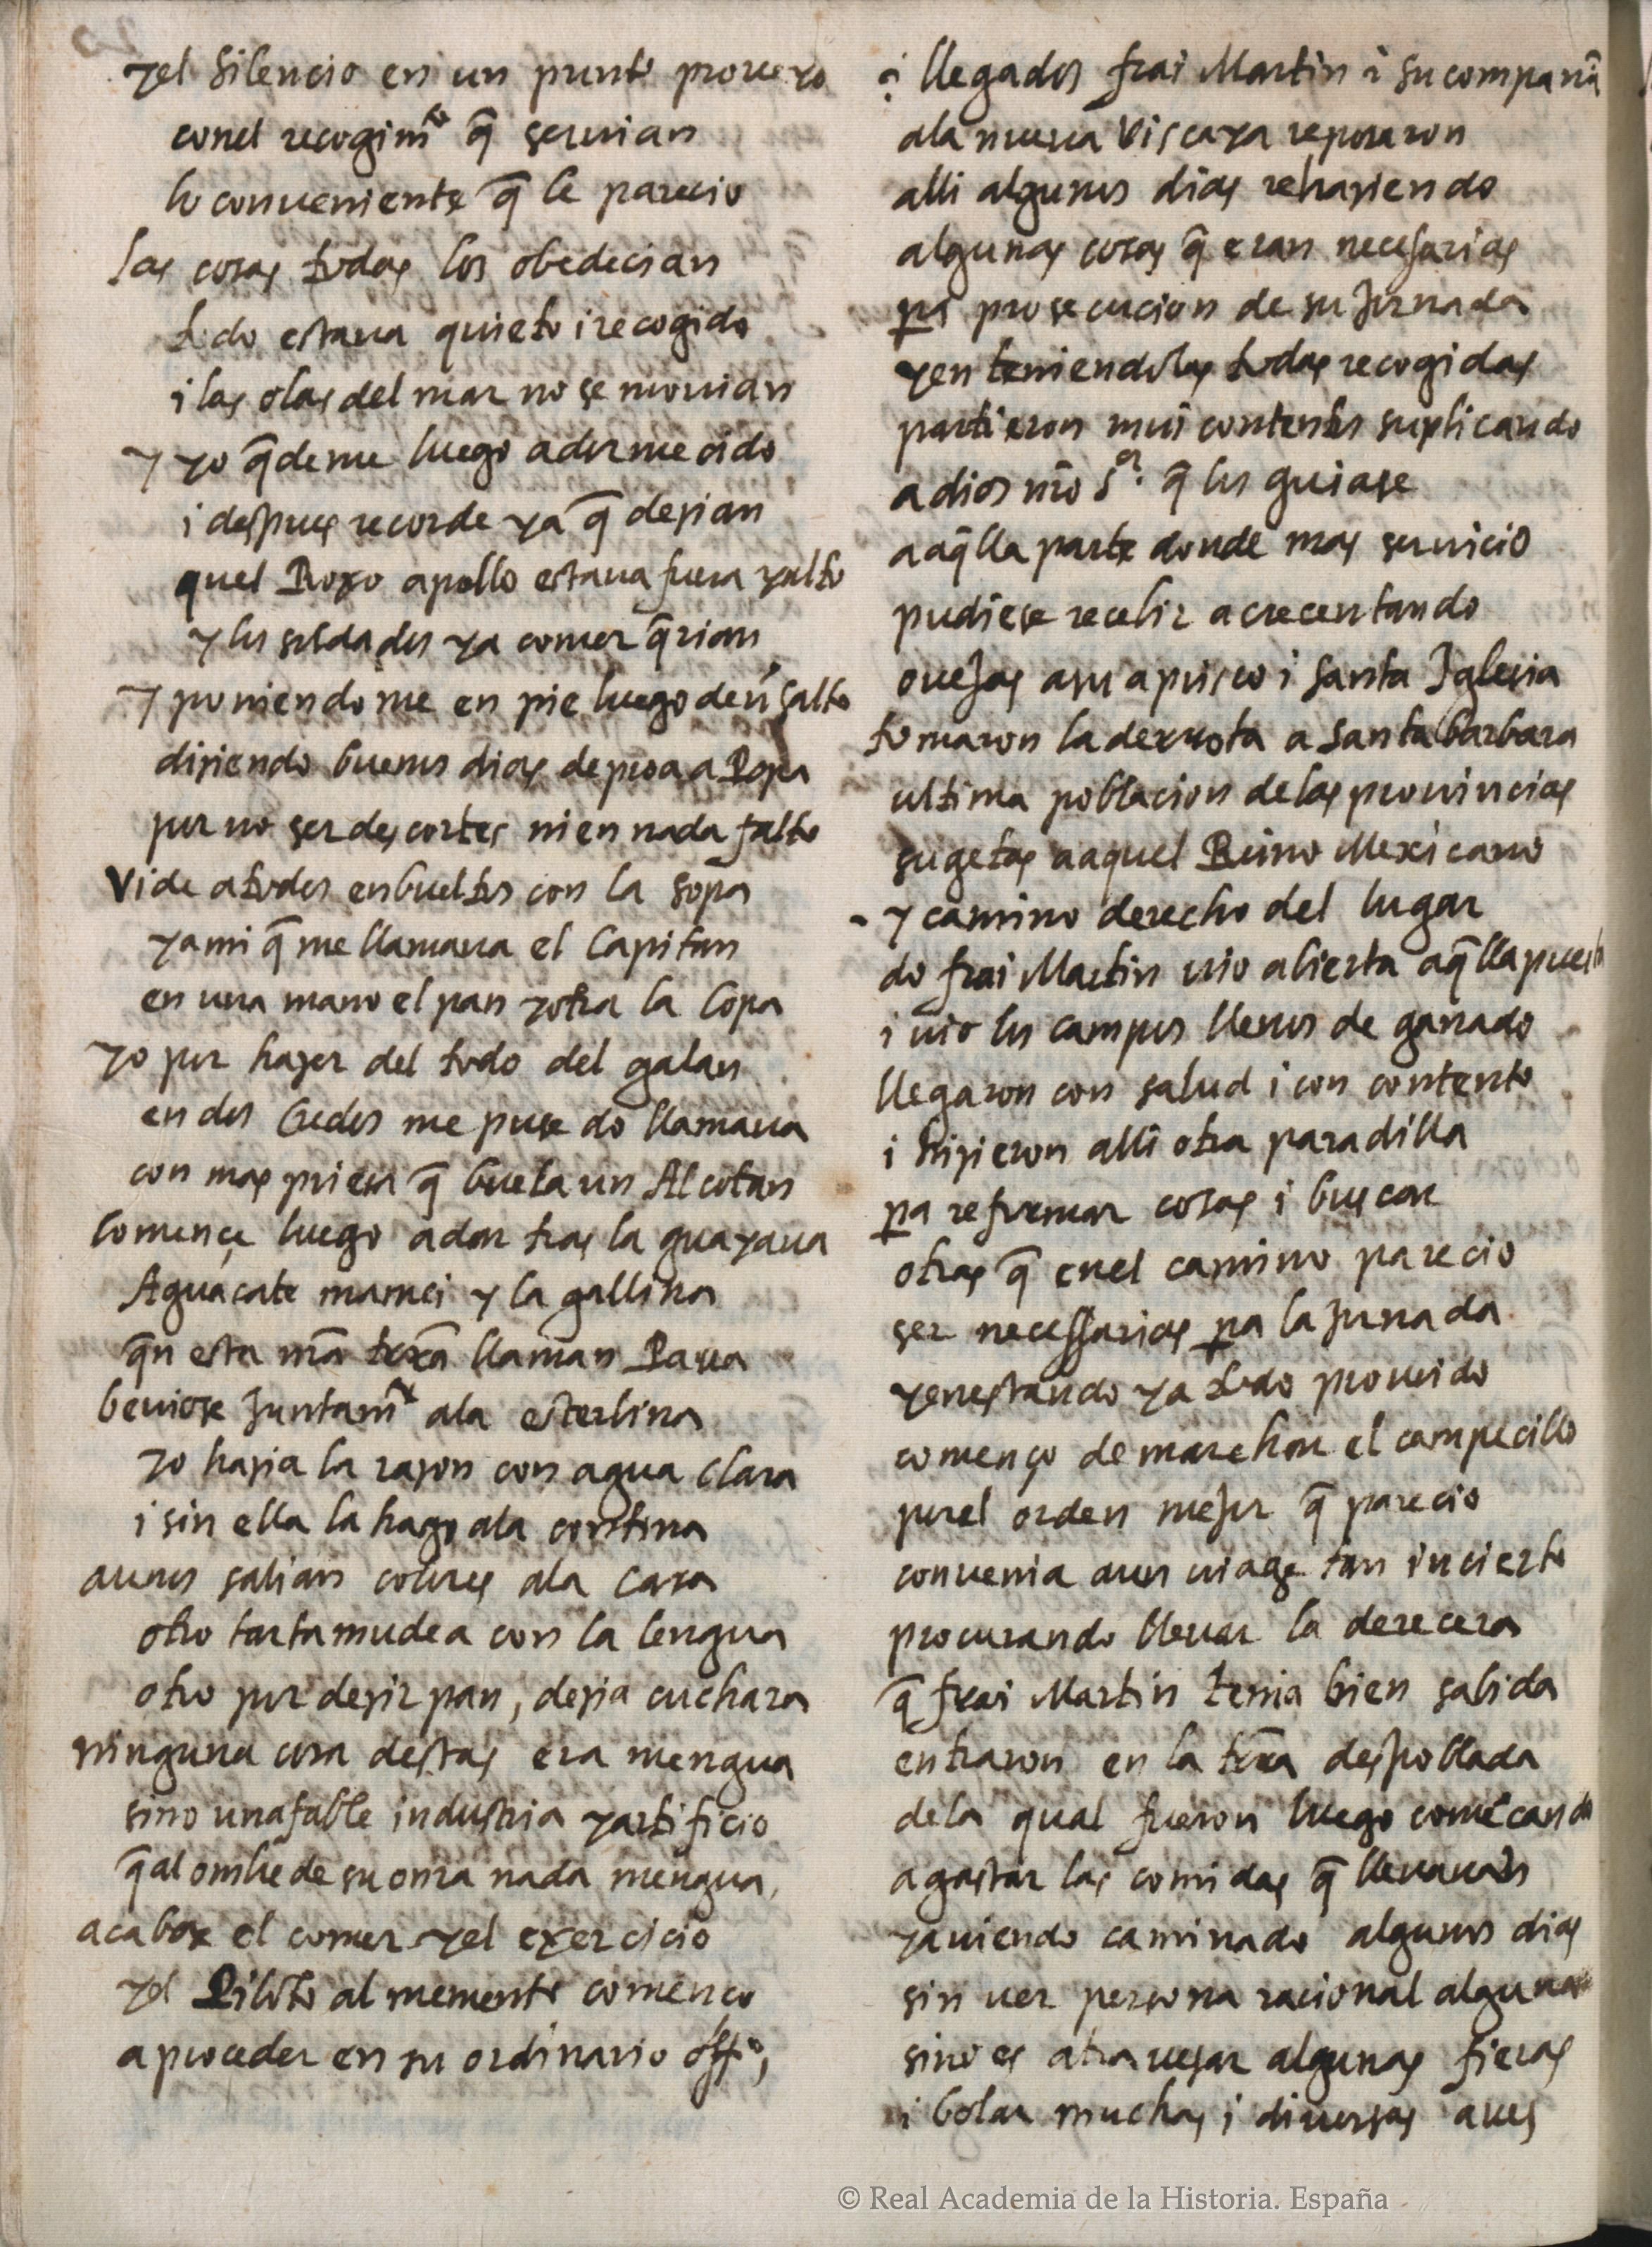 yel silencio en un punto proueyo
conel recogimto q̃ seruian
lo conueniente q̃ le parecio
las cosas todas los obedecian
todo estaua quieto i recogido
i las olas del mar no se mouian
y yo q̃deme luego adormecido
i despues recorde ya q̃ dezian
quel Roxo apollo estaua fuera yalto
y los soldados ya comer q̃rian
y poniendome en pie luego de ũ salto
diziendo buenos dias de proa a Popa
por no ser descortes ni en nada falto
Vide atodos enbueltos con la sopa
yami q̃ me llamaua el Capitan
en una mano el pan yotra la Copa
yo por hazer del todo del galan
en dos Credos me puse do llamaua
con mas priesa q̃ buela un Alcotan
Comence luego a dar tras la guayaua
Aguacate mamei y la gallina
q̃n esta nr̃a trr̃a llaman Paua
beuiose juntamte ala esterlina
yo hazia la razon con agua Clara
i sin ella la hago ala contina
aunos salian colores ala Cara
otro tartamudea con la lengua
otro por dezir pan, dezia cuchara
ninguna cosa destas era mengua
sino unafable industria yartificio
q̃al ombre de su onra nada mengua,
acabose el comer yel exercicio
yel Piloto al memento comenco
a proceder en su ordinario offo,
i llegados frai Martin i su compañã
ala nueua Viscaya reposaron
alli algunos dias rehaziendo
algunas cosas q̃ eran necesarias
pa prosecucion de su jornada
yen teniendolas todas recogidas
partieron mui contentos suplicando
a dios nr̃o Sor. q̃ los guiase
a aq̃lla parte donde mas seruicio
pudiese recebir acrecentando
ouejas asu aprisco i santa Iglesia
tomaron la derrota a santa barbara
ultima poblacion de las prouincias
sugetas a aquel Reino Mexicano
y camino derecho del lugar
do frai Martin uio abierta aq̃lla puerta
i uio los campos llenos de ganado
llegaron con salud i con contento
i hizieron alli otra paradilla
pa reformar cosas i buscar
otras q̃ enel camino parecio
ser necessarias pa la jornada
yenestando ya todo proueido
començo de marchar el campecillo
porel orden mejor q̃ parecio
conuenia aun uiage tan incierto
procurando lleuar la derecera
q̃ frai Martin tenia bien sabida
entraron en la trr̃a despoblada
dela qual fueron luego comẽcando
a gastar las comidas q̃ lleuauan
yauiendo caminado algunos dias
sin uer persona racional alguna
sino es atrauesar algunas fieras
i bolar muchas i diuersas aues
© Real Academia de la Historia. España